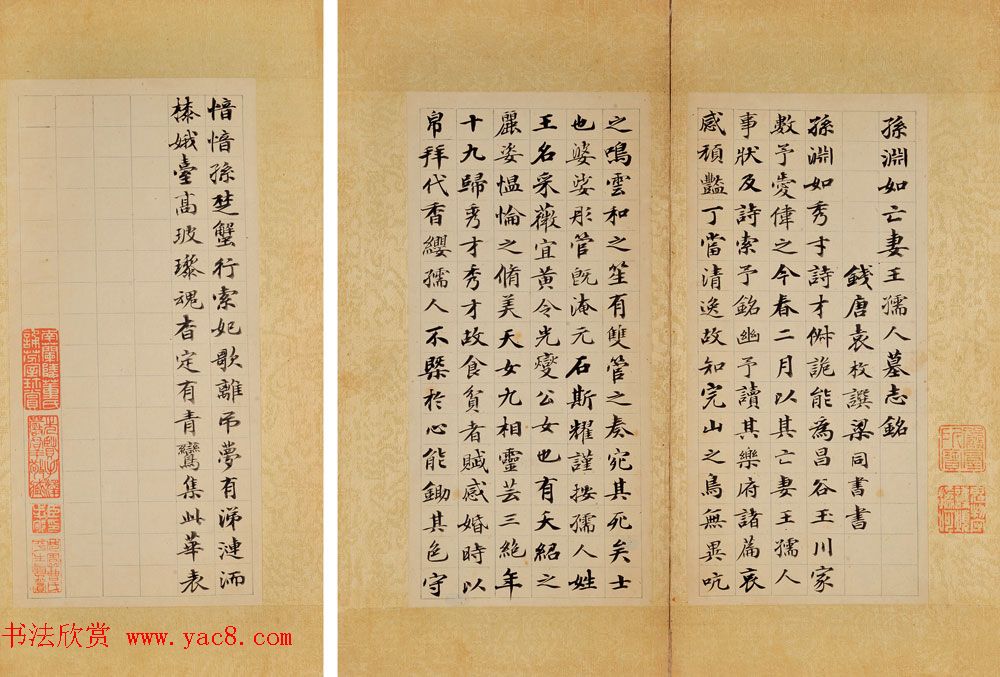 孫淵如亡妻王孺人墓志銘
錢唐袁枚譔梁同書書
孫淵如秀才詩才俶詭能為昌谷玉川家
數予愛偉之今春二月以其亡妻王孺人
事狀及詩索予銘幽予讀其樂府諸篇哀
感頑豔丁當清逸故知完山之鳥無異吭
之鳴雲和之笙有雙管之奏宛其死矣士
也婆娑彤管既淹元石斯耀謹按孺人姓
王名采薇宜黃令光燮公女也有夭紹之
麗姿愠惀之脩美天女九相靈芸三絕年
十九歸秀才秀才故食貧者賦感婚時以
帛拜代香纓孺人不槩於心能鋤其色守
愔愔孫楚蟹行索妃歌離弔夢有涕漣洏
榛娥臺高玻瓈魂杳定有青鸞集此華表
书法欣赏 www.yac8.com